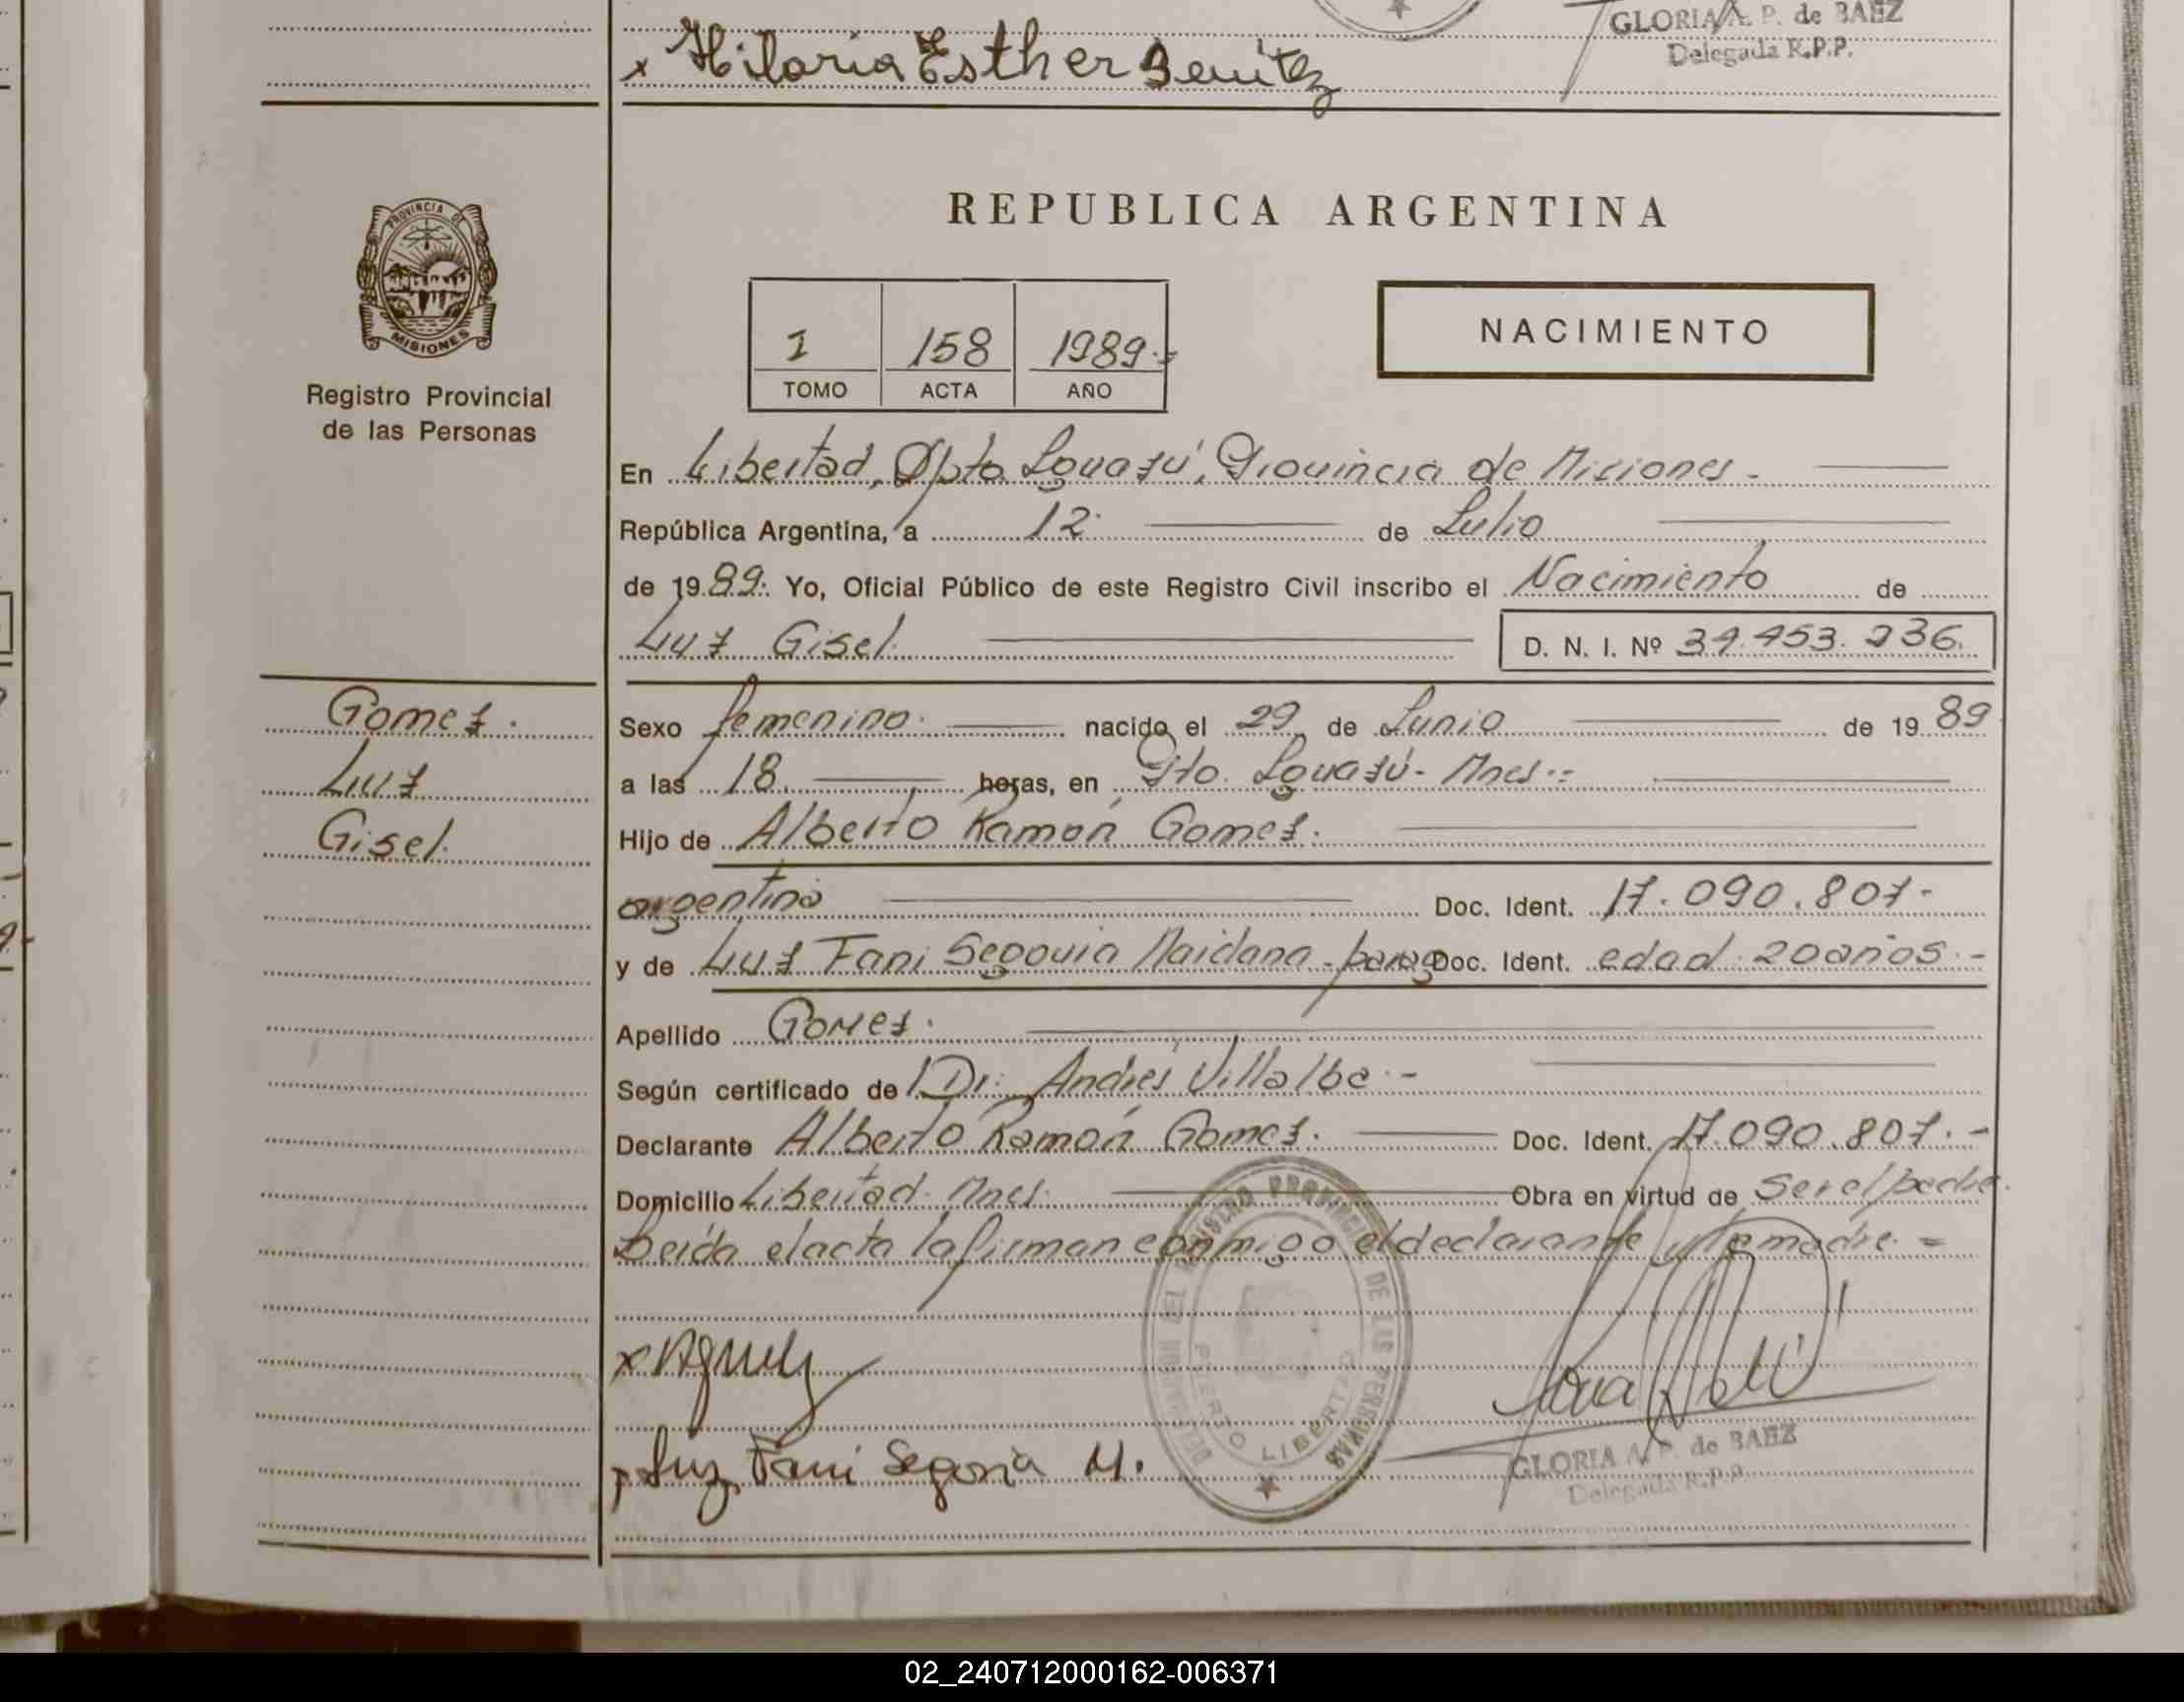 GLORIA A. P. de BAEZ
Delegada R.P.P.
x Hilaria Esther Benitez
PROVINCIA DE
MISIONES
Registro Provincial
de las Personas
REPUBLICA ARGENTINA
1 158 1989.=
TOMO ACTA AÑO
NACIMIENTO
En Libertad, Dpto Iguazú, Provincia de Misiones.-
República Argentina, a 12 de Julio
de 1989. Yo, Oficial Público de este Registro Civil inscribo el Nacimiento de
Luz Gisel.
D. N. I. Nº 34.453.236.
Gomez.
Luz
Gisel.
Sexo femenino. nacido el 29 de Junio de 1989
a las 18 horas, en Pto. Iguazú- Mnes.-
Hijo de Alberto Ramón Gomez.
argentino Doc. Ident. 17.090.807-
y de Luz Fani Segovia Maidana - parag Doc. Ident. edad: 20 años.-
Apellido Gomez.
Según certificado de Dr. Andrés Villalba.-
Declarante Alberto Ramón Gomez. Doc. Ident. 17.090.807.-
Domicilio Libertad. Mnes. Obra en virtud de Ser el padre.
Leida el acta la firman conmigo el declarante y la madre =
DEL REGISTRO PROVINCIAL DE LAS PERSONAS
PUERTO LIBERTAD
x Luz Fani Segovia M.
GLORIA A. P. de BAEZ
Delegada R.P.P.
02_240712000162-006371